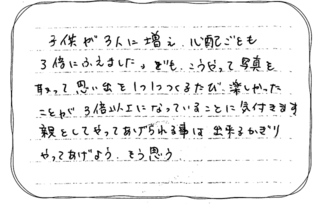 子供が3人に増え、心配ごとも
3倍にふえました。でも、こうやって写真を
取って思い出を1つ1つつくるたび、楽しかった
ことが3倍以上になっていることに気付きます
親としてやってあげられる事は出来るかぎり
やってあげよう。そう思う